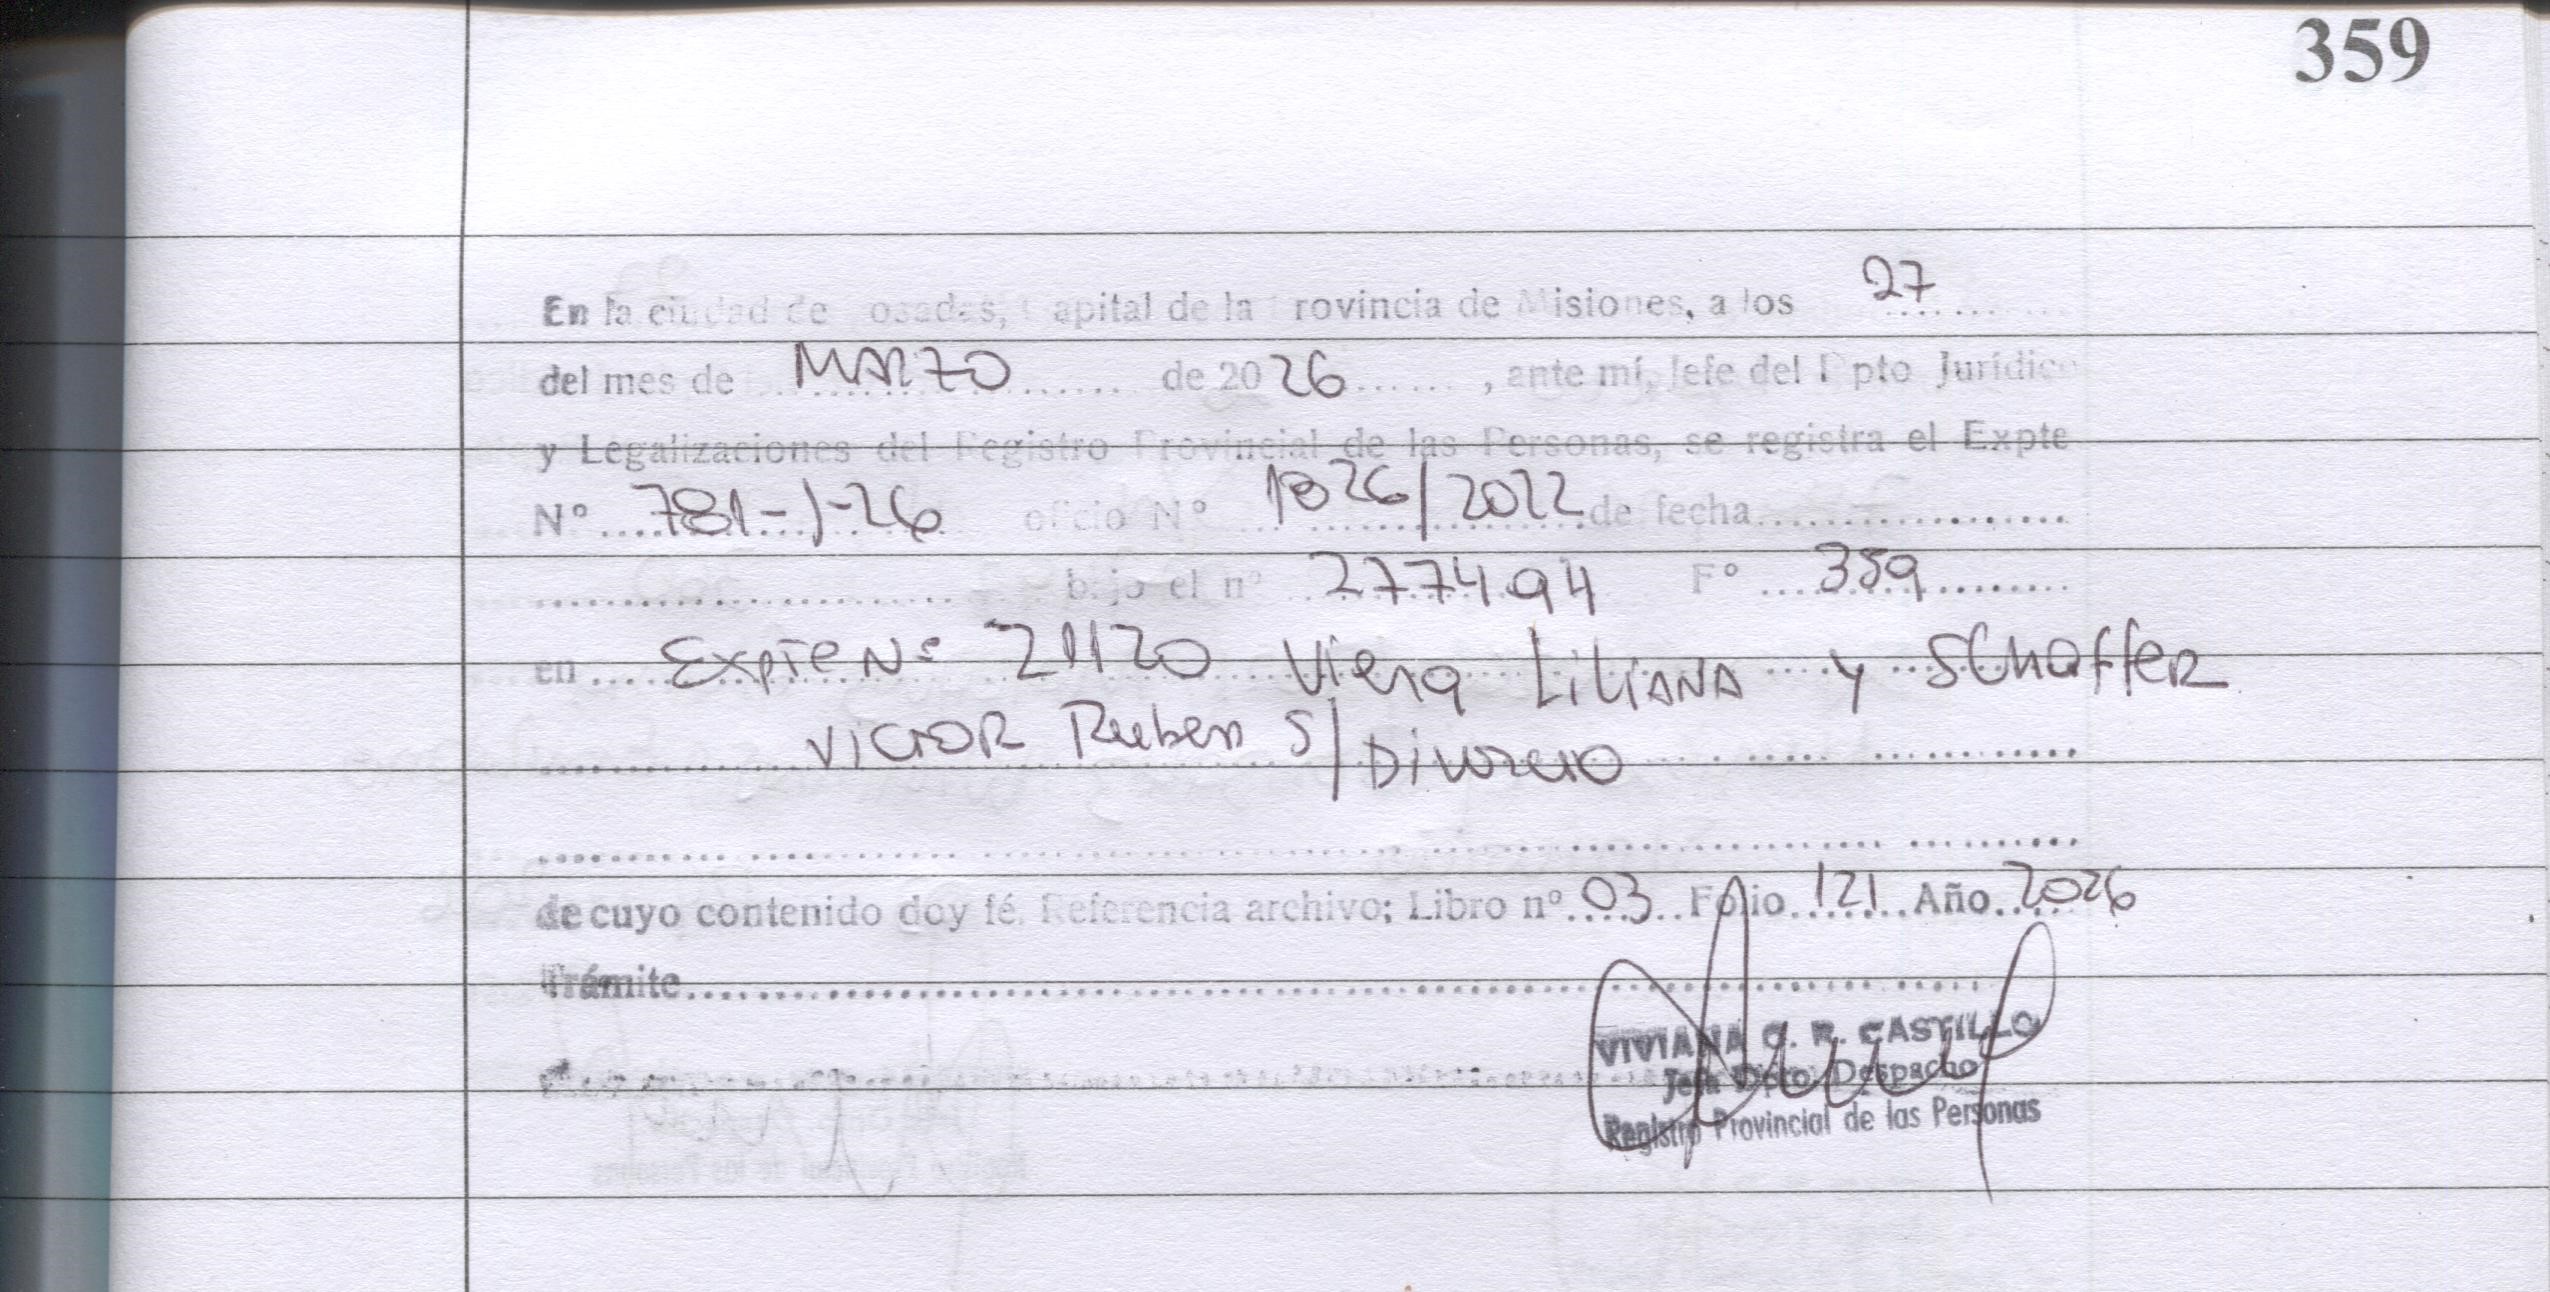 359
En la ciudad de osadas, apital de la rovincia de Misiones, a los 27
del mes de MARZO de 2026, ante mí, Jefe del Dpto Jurídico
y Legalizaciones del Registro Provincial de las Personas, se registra el Expte
Nº 781-J-26 oficio Nº 1826/2022 de fecha
bajo el nº 277494 Fº 359
en Expte Nº 21120 Viera LiLiANA y SCHaffeR
VICTOR Ruben S/ Divorcio
de cuyo contenido doy fé. Referencia archivo; Libro nº 03 Folio 121 Año 2026
Trámite
VIVIANA C. R. CASTILLO
Jefa Dpto. Despacho
Registro Provincial de las Personas